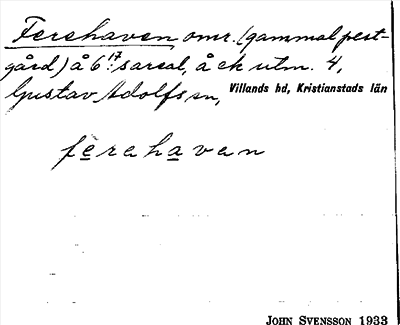 Ferehaven omr. (gammal pest-
gård) å 6:17 sareal, å ek utm. 4,
Gustav Adolfs sn, Villands hd, Kristianstads län
ferehaven
JOHN SVENSSON 1933